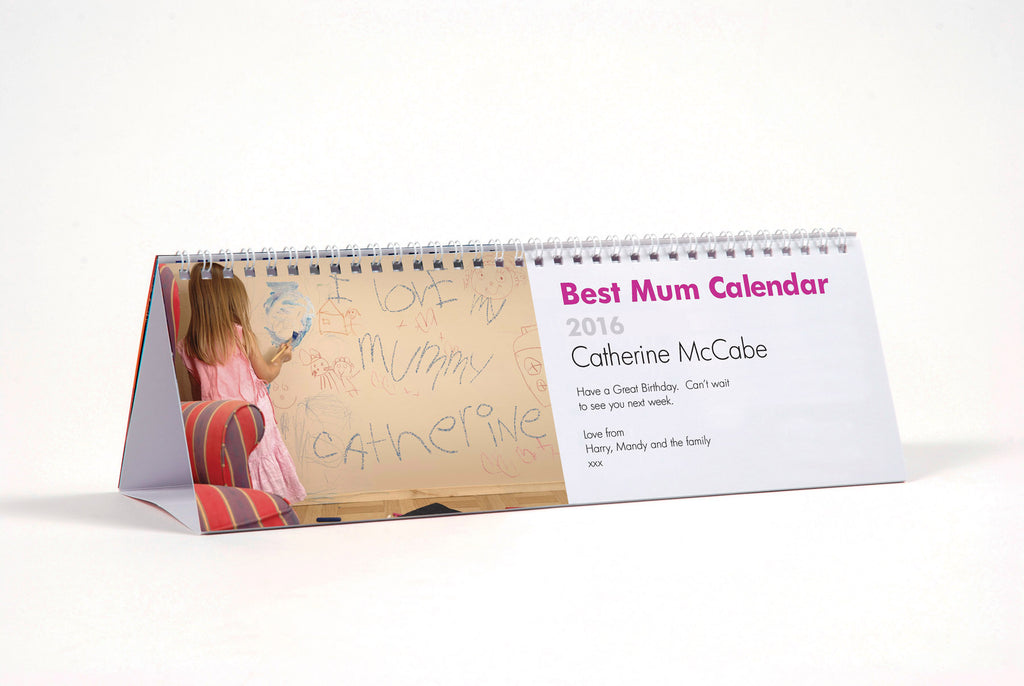 I LOVE
MY
MUMMY
CATHERINE
Best Mum Calendar
2016
Catherine McCabe
Have a Great Birthday. Can't wait
to see you next week.
Love from
Harry, Mandy and the family
xxx